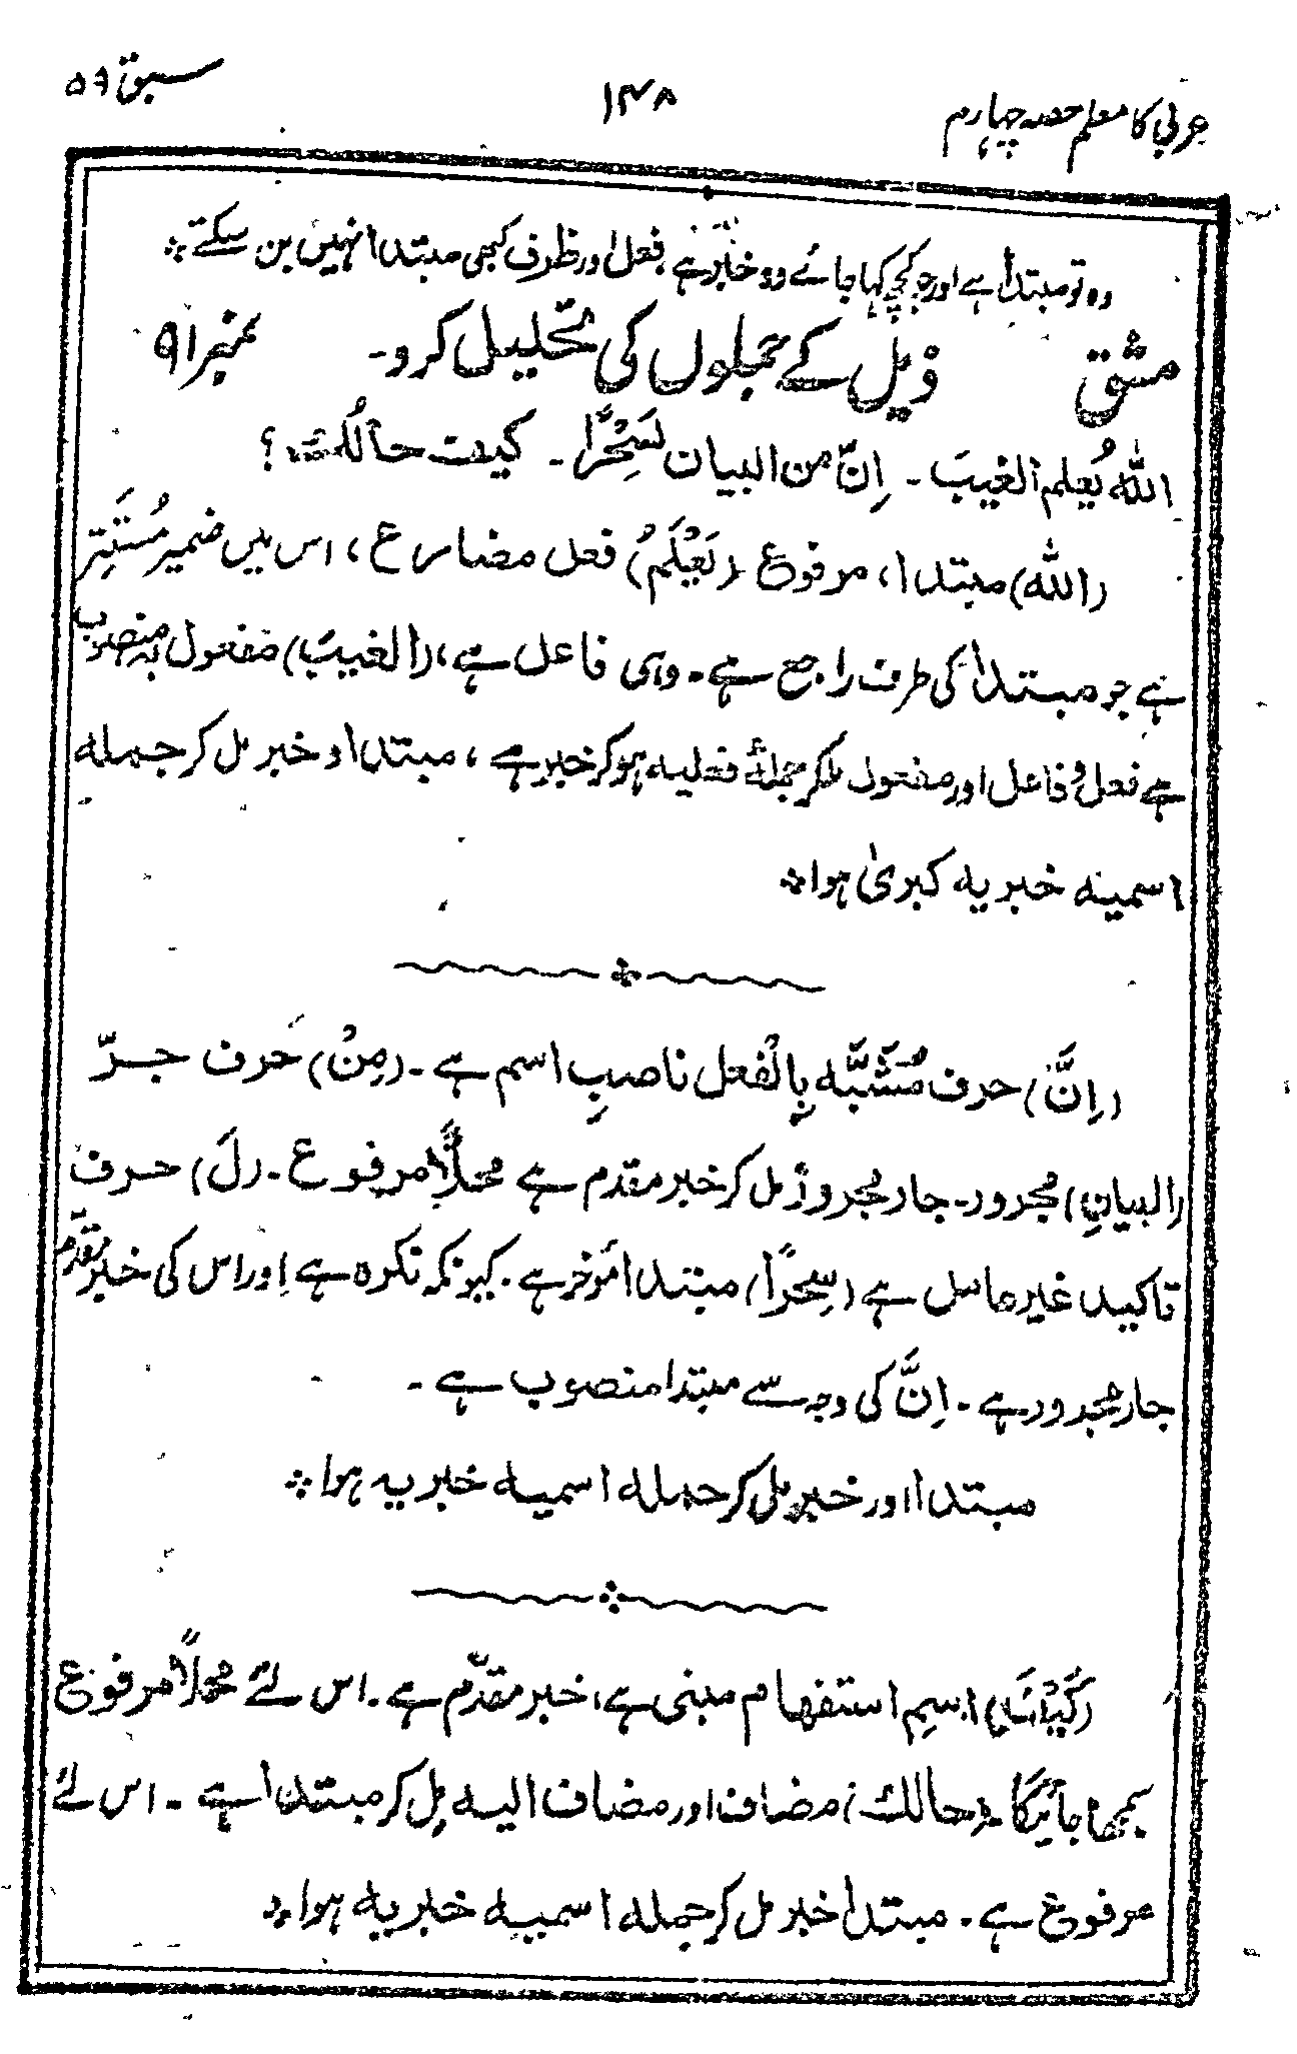 عربی کا معلم حصہ چہارم
۱۴۸
سبق ۵۹
وہ تو مبتدا ہے اور جو کچھ کہا جائے وہ خبر ہے فعل اور ظرف کبھی مبتدا نہیں بن سکتے
مشق ذیل کے جملوں کی تحلیل کرو۔ نمبر ۹۱
اللہُ یَعلم الغیبَ ۔ اِنَّ من البیان لَسِحْرًا ۔ کیف حالُكَ ؟
(اللہُ) مبتدا، مرفوع (یَعْلَمُ) فعل مضارع، اس میں ضمیر مُسْتَتِر
ہے جو مبتدا کی طرف راجع ہے۔ وہی فاعل ہے، (الغیبَ) مفعول بہ منصوب
ہے فعل و فاعل اور مفعول ملکر جملۂ فعلیہ ہو کر خبر ہے، مبتدا و خبر مل کر جملہ
اسمیہ خبریہ کبریٰ ہوا
(اِنَّ) حرف مُشَبَّہ بِالْفعل ناصبِ اسم ہے۔ (مِنْ) حَرف جرّ
(البیانِ) مجرور۔ جار مجرور مل کر خبر مقدم ہے محلاًّ مرفوع۔ (لَ) حرف
تاکید غیر عامل ہے (سِحْرًا) مبتدا مؤخر ہے۔ کیونکہ نکرہ ہے اور اس کی خبر مقدّم
جار مجرور ہے۔ اِنَّ کی وجہ سے مبتدا منصوب ہے۔
مبتدا اور خبر مل کر جملہ اسمیہ خبریہ ہوا
(کَیْفَ) اسمِ استفہام مبنی ہے، خبر مقدّم ہے۔ اس لئے محلاًّ مرفوع
سمجھا جائیگا (حالك) مضاف اور مضاف الیہ مل کر مبتدا ہے ۔ اس لئے
مرفوع ہے۔ مبتدا خبر مل کر جملہ اسمیہ خبریہ ہوا